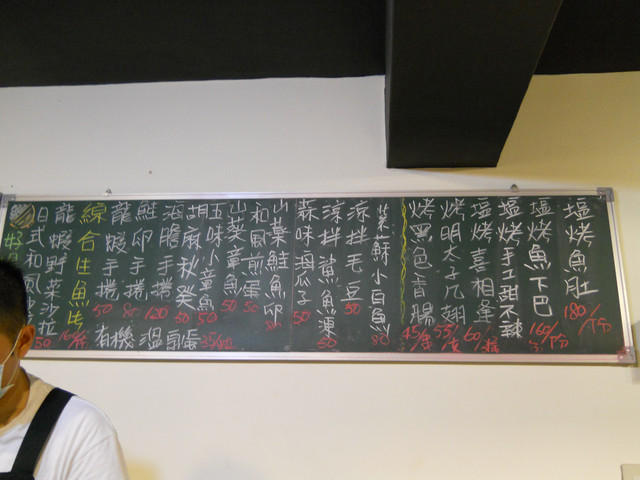 塩烤魚肚 180/份
塩烤魚下巴 160/份
塩烤手工甜不辣
塩烤喜相逢 60/
烤明太子几翅 55/支
烤黑色香腸 45/
紫蘇小白魚 80
涼拌毛豆 50
涼拌鯊魚凍 50
蒜味海瓜子 50
山葵鮭魚卵
和風煎蛋 50
山葵章魚 50
五味小章魚 50
胡麻秋葵 50
海膽手捲 120
鮭卵手捲 80
龍蝦手捲 50
有機溫 35/
綜合生魚片
龍蝦野菜
日式和風沙拉 50